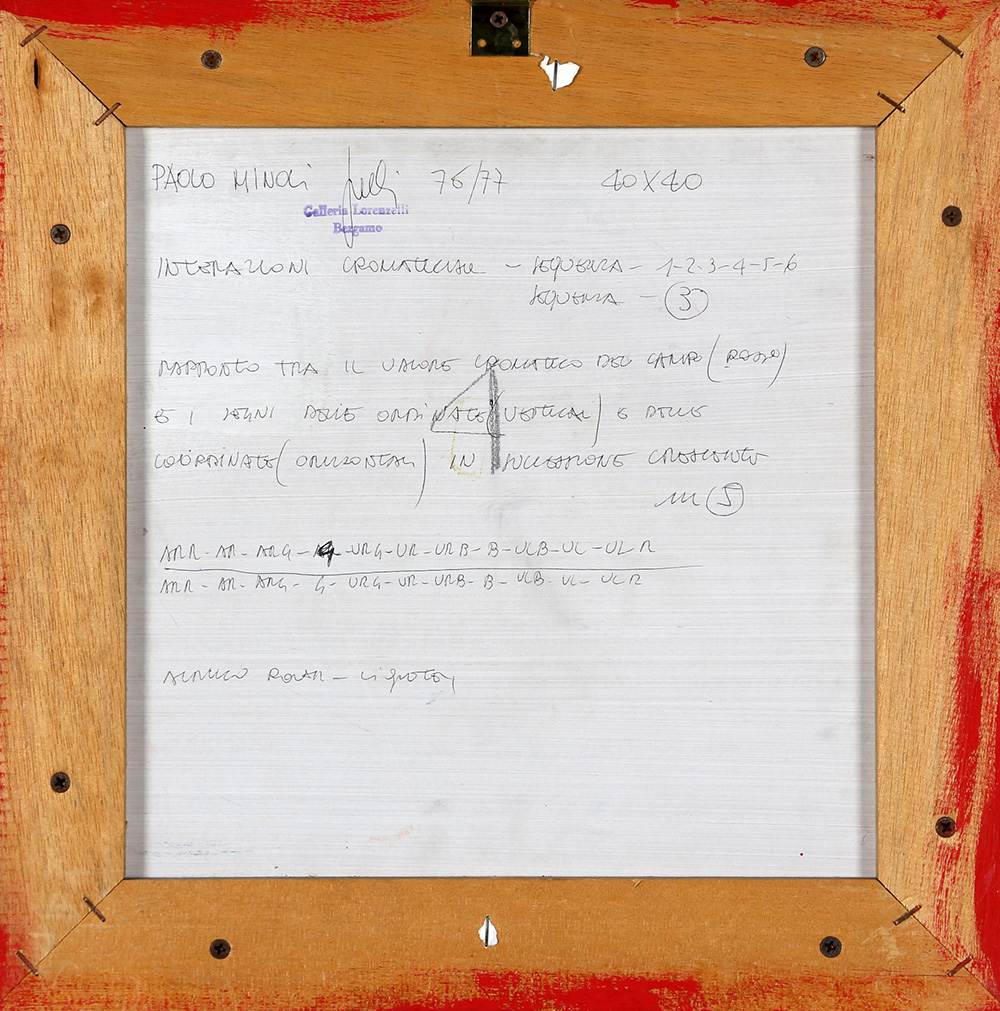 PAOLO MINOLI 76/77 40X40
Galleria Lorenzelli
Bergamo
INTERAZIONI CROMATICHE - SEQUENZA - 1-2-3-4-5-6
SEQUENZA - 3
RAPPORTO TRA IL VALORE CROMATICO DEL CAMPO (ROSSO)
E I SEGNI DELLE ORDINATE (VERTICALI) E DELLE
COORDINATE (ORIZZONTALI) IN SUCCESSIONE CRESCENTE
5
ARR - AR - ARG - G - URG - UR - URB - B - ULB - UL - ULR
ARR - AR - ARG - G - URG - UR - URB - B - ULB - UL - ULR
ACRILICO